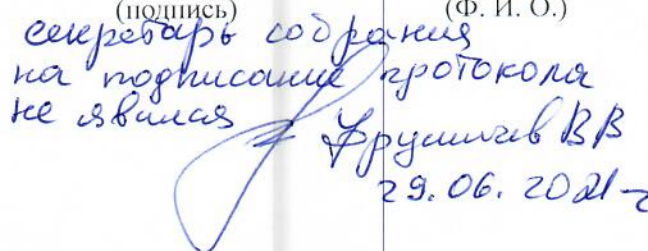 (подпись) (Ф. И. О.)
секретарь собрания
на подписание протокола
не явился
ВВ
29.06.2021г